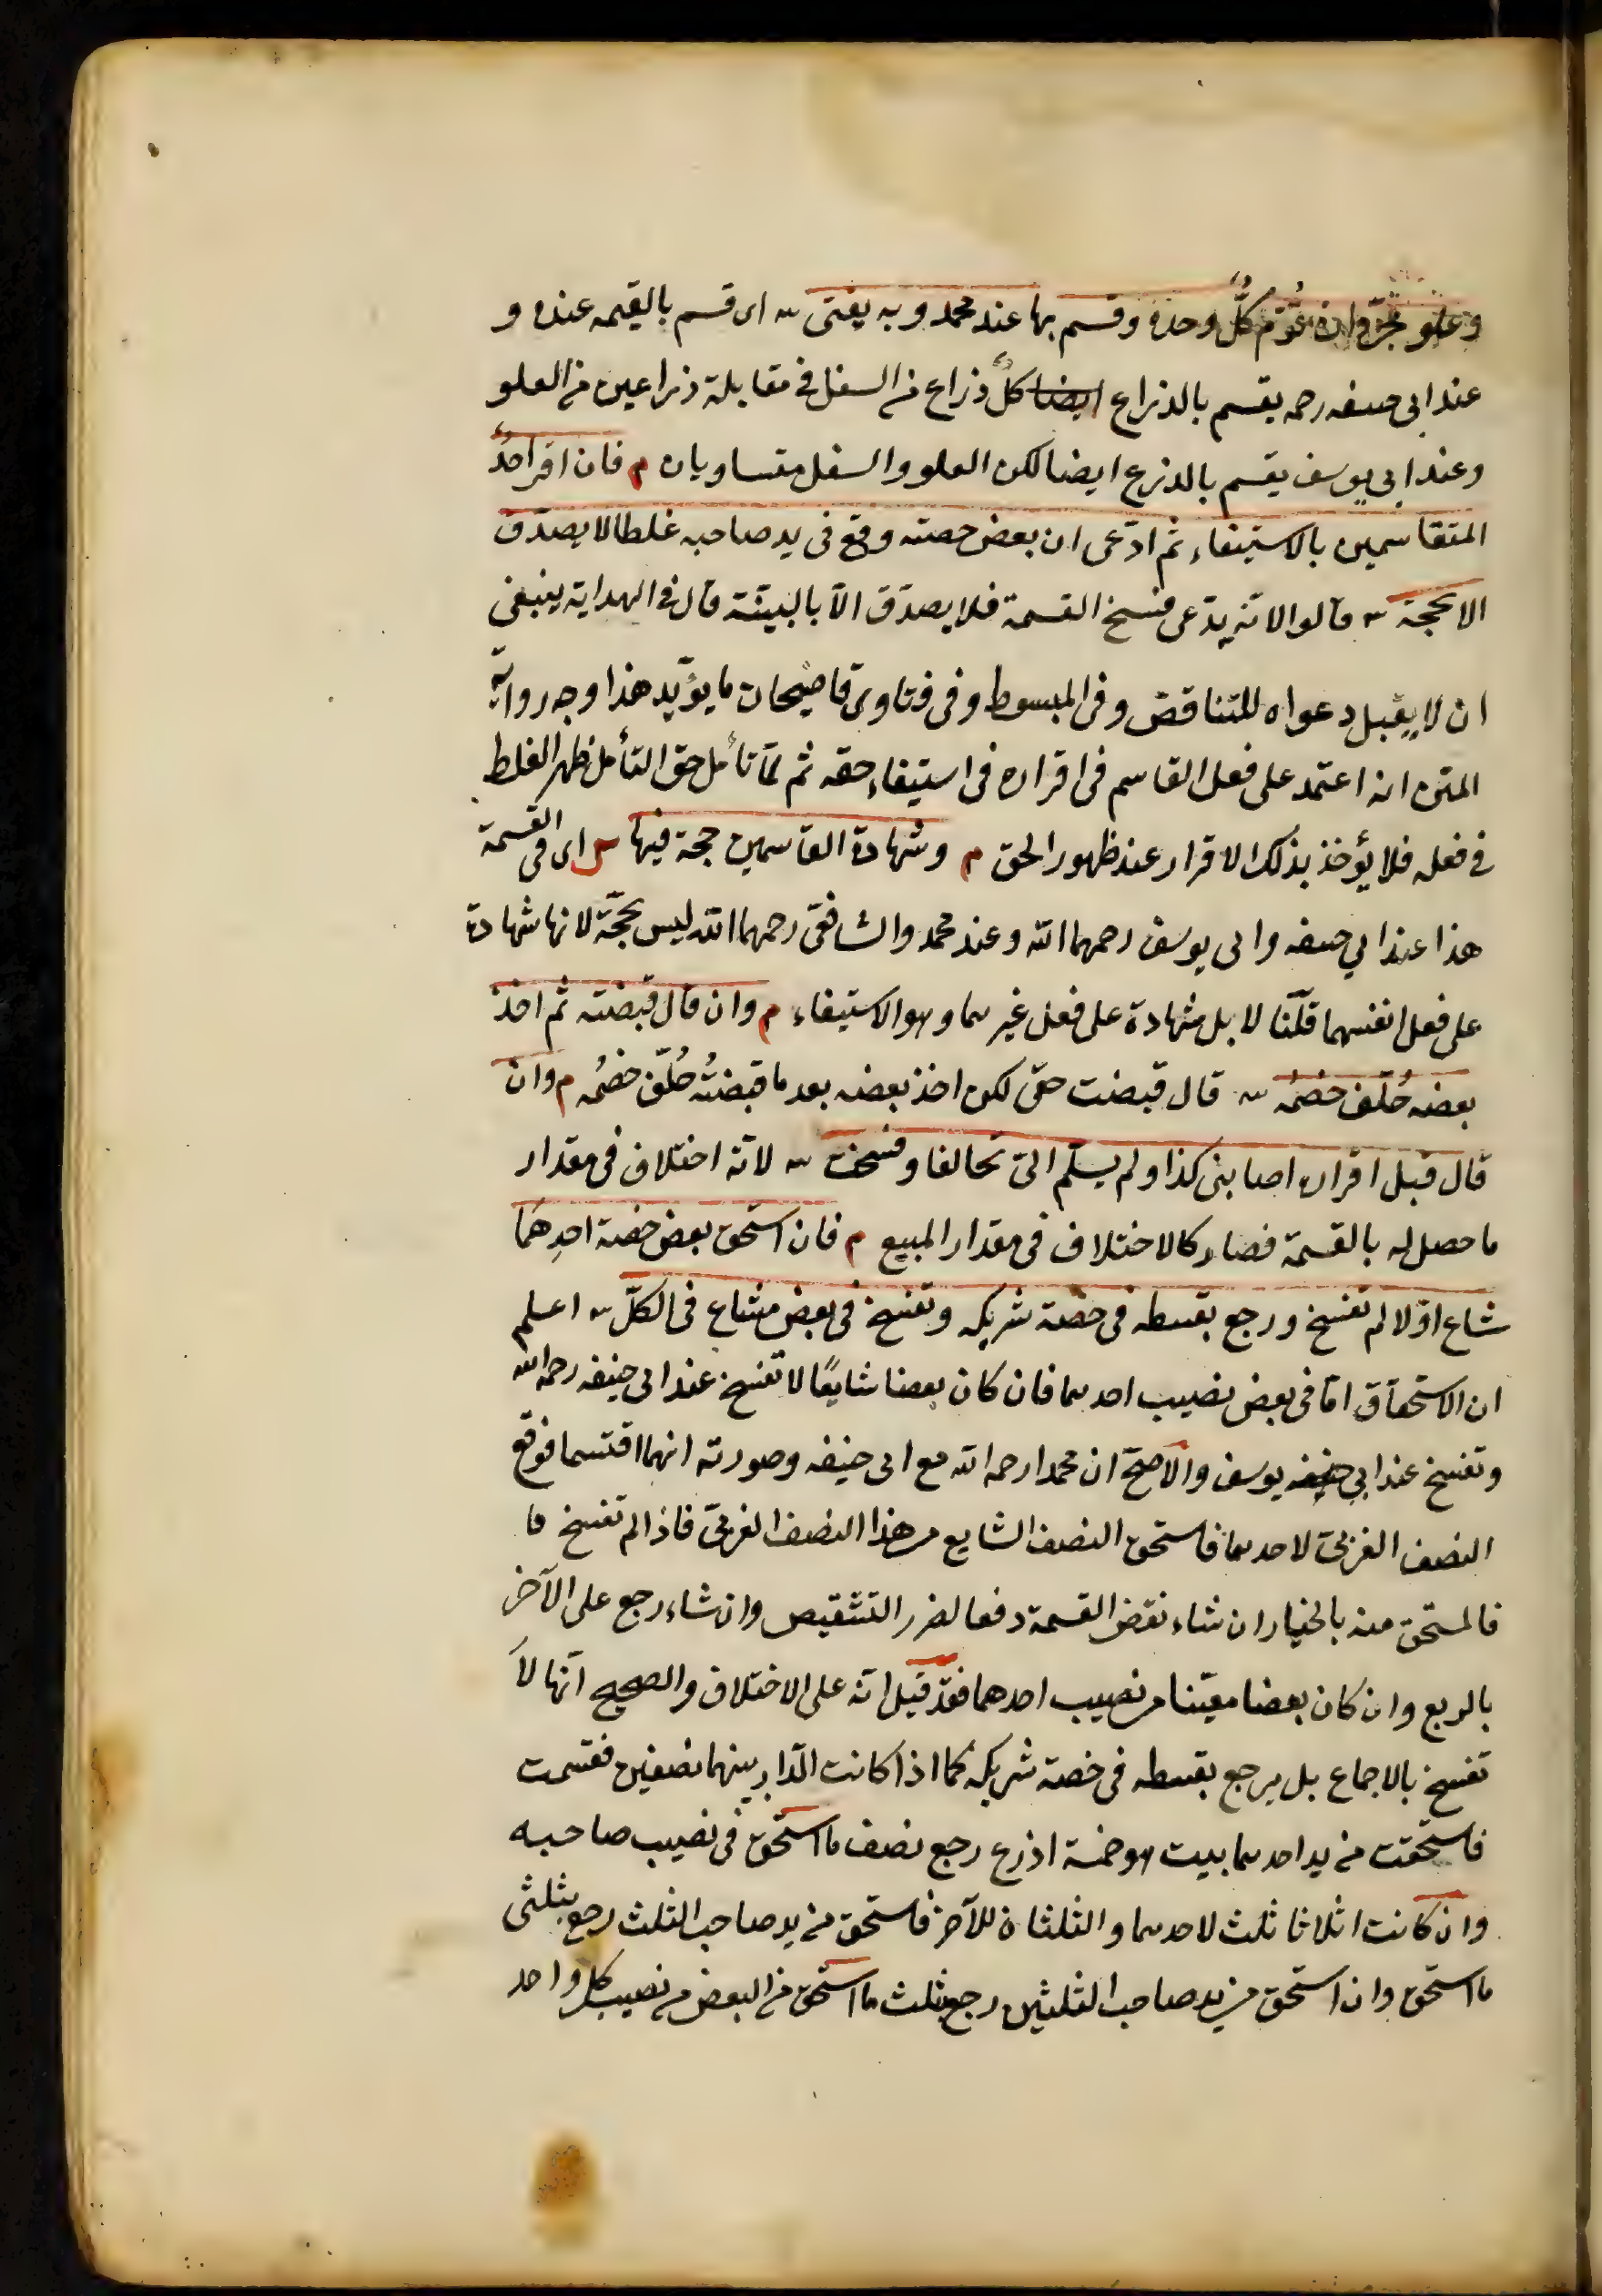 وعلو مجرّدان قُوّم كلٌّ وحده وقسم بها عند محمد وبه يفتى ش اى قسم بالقيمه عنده و
عند ابى حنيفه رحمه يقسم بالذراع ايضا كلّ ذراع من السفل فى مقابلة ذراعين من العلو
وعند ابى يوسف يقسم بالذرع ايضا لكن العلو والسفل متساويان م فان اقر احدُ
المتقاسمين بالاستيفاء ثم ادّعى ان بعض حصته وقع فى يد صاحبه غلطا لا يصدّق
الا بحجة ش قالوا لانّه يدّعى فسخ القسمة فلا يصدّق الّا بالبيّنة قال فى الهداية ينبغى
ان لا يقبل دعواه للتناقض وفى المبسوط وفى فتاوى قاضيخان ما يؤيّد هذا وجه رواية
المتن انه اعتمد على فعل القاسم فى اقراره فى استيفاء حقه ثم لمّا تأمل حق التأمل ظهر الغلط
فى فعله فلا يؤخذ بذلك الاقرار عند ظهور الحق م وشهادة القاسمين حجة فيها ش اى فى القسمة
هذا عند ابي حنيفه وابى يوسف رحمهما الله وعند محمد والشافعى رحمهما الله ليس بحجّة لانها شهادة
على فعل انفسهما قلنا لا بل شهادة على فعل غيرهما وهو الاستيفاء م وان قال قبضته ثم اخذ
بعضه حُلّف خصمُه ش قال قبضت حقى لكن اخذ بعضه بعد ما قبضتُه حُلّف خصمُه م وان
قال قبل اقراره اصابنى كذا ولم يسلّم الىّ تحالفا وفسخت ش لانّه اختلاف فى مقدار
ما حصل له بالقسمة فصار كالاختلاف فى مقدار المبيع م فان استحق بعض حصة احدِهما
شاع اوّلا لم تفسخ ورجع بقسطه فى حصة شريكه وتفسخ فى بعض مشاع فى الكلّ ش اعلم
ان الاستحقاق امّا فى بعض نصيب احدهما فان كان بعضا شايعًا لا تفسخ عند ابى حنيفه رحمه الله
وتفسخ عند ابي حنيفه يوسف والاصحّ ان محمدا رحمه الله مع ابى حنيفه وصورته انهما اقتسما فوقع
النصف الغربىّ لاحدهما فاستحق النصف الشايع من هذا النصف الغربىّ فاذا لم تفسخ فا
فالمستحق منه بالخيار ان شاء نقض القسمة دفعا لضرر التشقيص وان شاء رجع على الآخر
بالربع وان كان بعضا معيّنا من نصيب احدهما فقد قيل انّه على الاختلاف والصحيح انّها لا
تفسخ بالاجماع بل يرجع بقسطه فى حصة شريكه كما اذا كانت الدّار بينهما نصفين فقسمت
فاستحقت من يد احدهما بيت هو خمسة اذرع رجع نصف ما استحق فى نصيب صاحبه
وان كانت اثلاثا ثلث لاحدهما والثلثان للآخر فاستحق من يد صاحب الثلث رجع بثلثى
ما استحق وان استحق من يد صاحب الثلثين رجع بثلث ما استحق من البعض من نصيب كل واحد